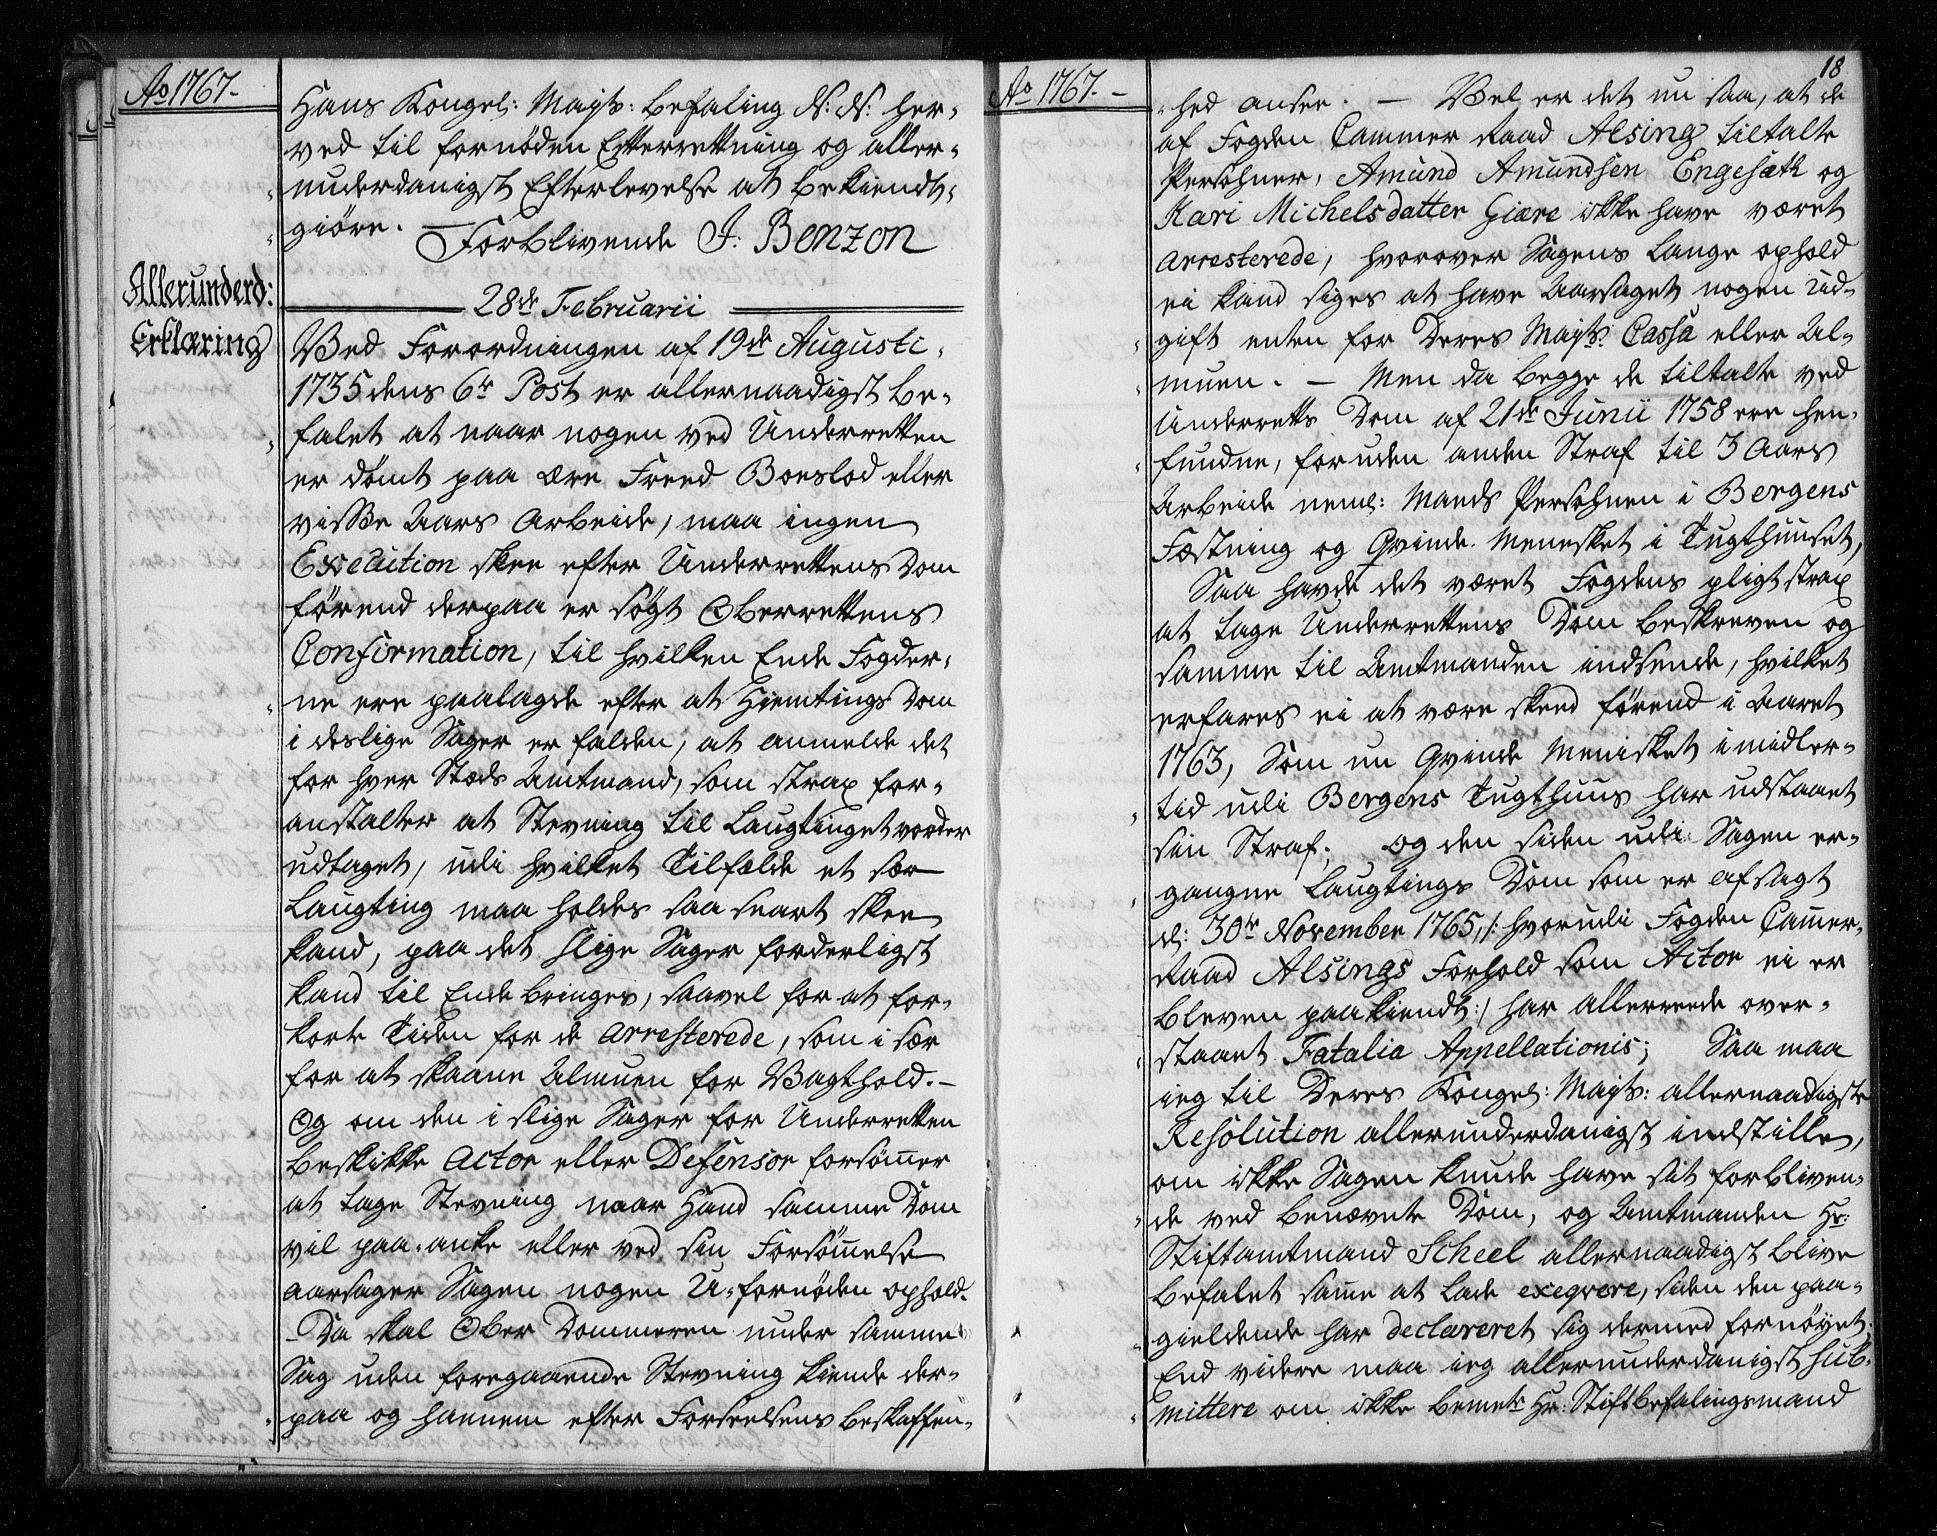 Ao 1767.-
Hans Kongel: Mayts: befaling N: N: her-
ved til fornöden Efterrettning og aller-
underdanigst Efterlevelse at bekiendt-
giöre. - Forblivende J: Benzon
Allerunderd:
Erklæring
28de Februarii
Ved Forordningen af 19de Augusti
1735 dens 6te Post er allernaadigst be-
falet at naar nogen ved Underretten
er dömt paa Ære Freed Boeslod eller
visse Aars Arbeide, maa ingen
Execution skee efter Underrettens Dom
förend derpaa er sögt Oberrettens
Confirmation, til hvilken Ende Fogder-
ne ere paalagde efter at Hiemtings Dom
i deslige Sager er falden, at anmelde det
for hver Stæds Amtmand, som strax for-
anstalter at Stevning til Laugtinget vorder
udtaget, udi hvilket Tilfælde et sær
Laugting maa holdes saa snart skee
kand, paa det slige Sager forderligst
kand til Ende bringes, saavel for at for-
korte Tiden for de arresterede, som i sær
for at skaane Almuen for Vagthold. -
Og om den i slige Sager for Underretten
beskikke Actor eller Defensor forsömer
at tage Stevning naar Hand samme Dom
vil paa-anke eller ved sin Forsömelse
aarsager Sagen nogen U-fornöden ophold.
- Da skal Ober Dommeren under samme
Sag uden foregaaende Stevning kiende der-
paa og hannem efter Forseelsens beskaffen-
Ao 1767. -
18
hed ansee. - Vel er det nu saa, at de
af Fogden Cammer Raad Alsing tiltalte
Persohner, Amund Amundsen Engesæth og
Kari Michelsdatter Giære ikke have været
arresterede, hvorover Sagens Lange ophold
ei kand siges at have Aarsaget nogen Ud-
gift enten for Deres Mayts: Cassa eller Al-
muen. - Men da begge de tiltalte ved
Underretts Dom af 21de Junii 1758 ere hen-
fundne, foruden anden Straf til 3 Aars
Arbeide neml: Mands Persohnen i Bergens
Fæstning og Qvinde Menesket i Tugthuuset,
Saa havde det været Fogdens pligt strax
at tage Underrettens Dom beskreven og
samme til Amtmanden indsende, hvilket
erfares ei at være skeed förend i Aaret
1763, Som nu Qvinde Menisket imidler-
tid udi Bergens Tugthuus har udstaaet
sin Straf; og den siden udi Sagen er-
gangne Laugtings Dom som er afsagt
d: 30te November 1765, /: hvorudi Fogden Camer-
Raad Alsings Forhold som Actor ei er
bleven paakiendt :/ har allerreede over-
staaet Fatalia Appellationis; Saa maa
ieg til Deres Kongel: Mayts: allernaadigste
Resolution allerunderdanigst indstille,
om ikke Sagen kunde have sit forbliven-
de ved benævnte Dom, og Amtmanden Hr:
Stiftamtmand Scheel allernaadigst blive
befalet same at lade exeqvere, siden den paa-
gieldende har declareret sig dermed fornöyet.
End videre maa ieg allerunderdanigst sub-
mittere om ikke bemte Hr: Stiftbefalingsmand